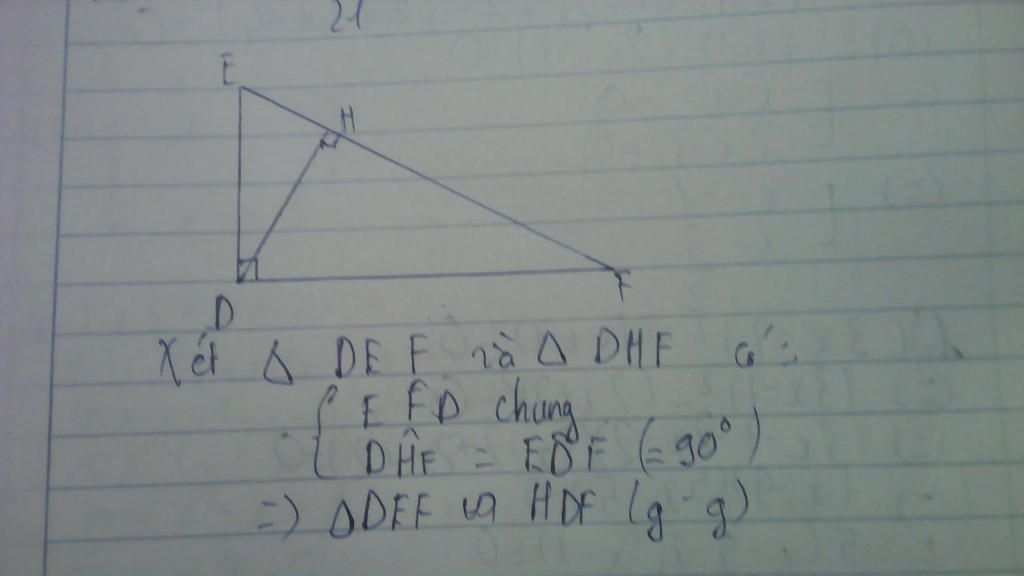 21
E
H
D
F
Xét Δ DEF và Δ DHF có :
EF̂D chung
DĤF = ED̂F (= 90°)
=> ΔDEF ∽ HDF (g - g)